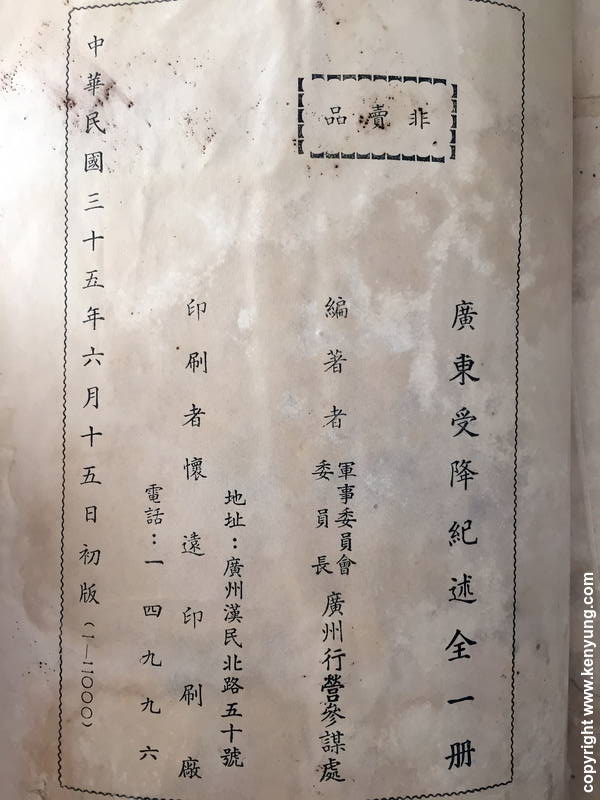 廣東受降紀述全一册
非賣品
編著者
軍事委員會
委員長
廣州行營參謀處
地址：廣州漢民北路五十號
印刷者懷遠印刷廠
電話：一四九九六
中華民國三十五年六月十五日初版（一—二〇〇〇）
copyright www.kenyung.com